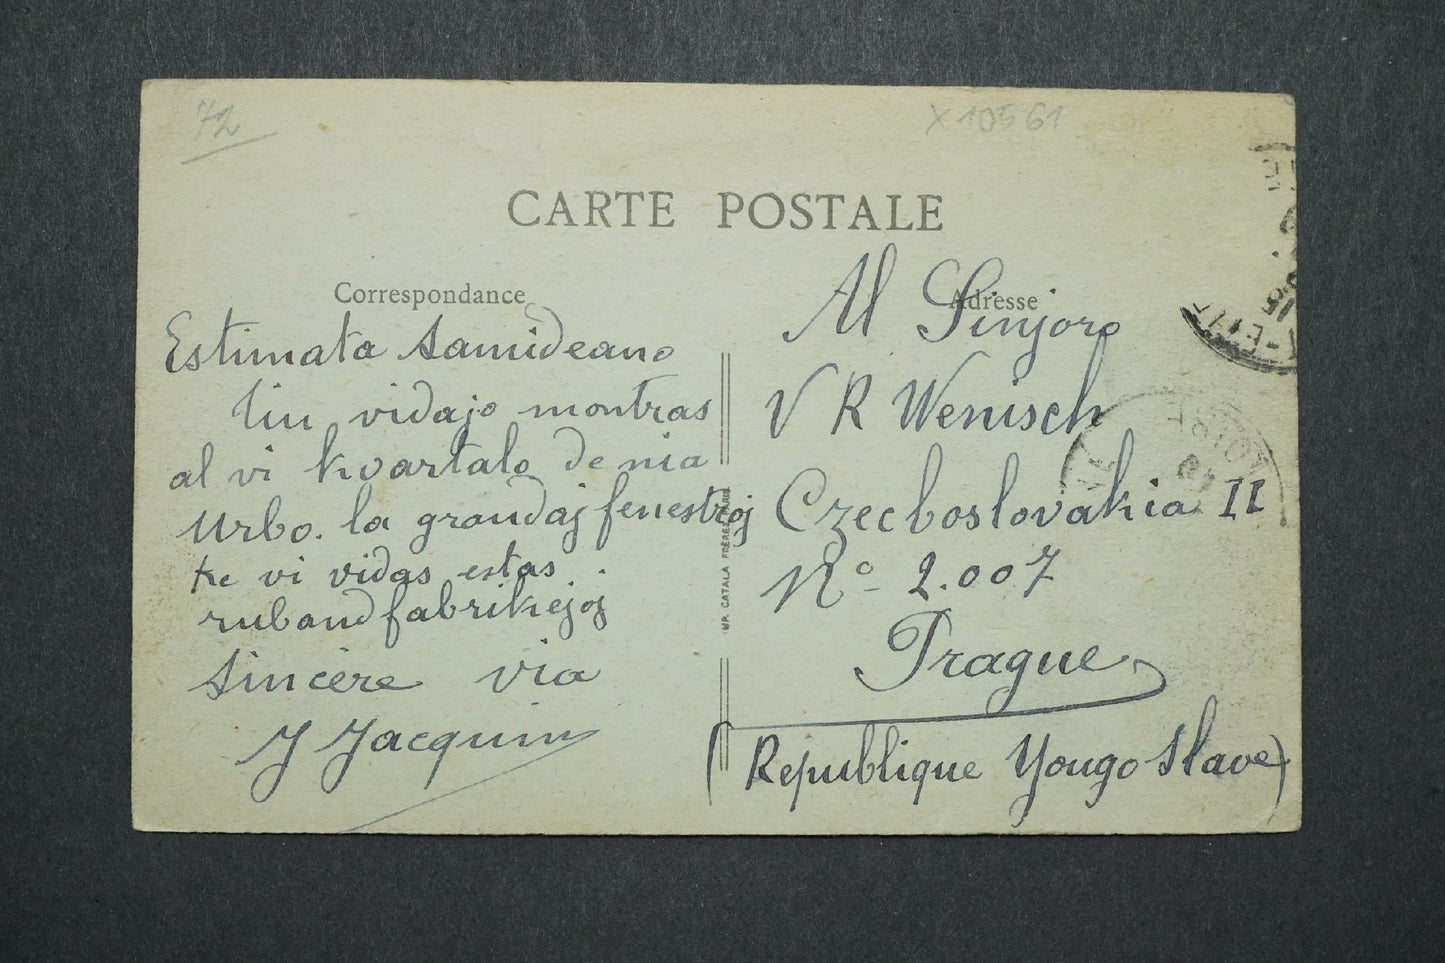 72
X 10561
CARTE POSTALE
Correspondance
Adresse
Estimata Samideano
tiu vidajo montras
al vi kvartalo de nia
urbo. la grandaj fenestroj
ke vi vidas estas
ruband fabrikejoj
Sincère via
J Jacquin
IMP. CATALA FRÈRES PARIS
Al Sinjoro
V R Wenisch
Czechoslovakia II
No 2.007
Prague
(Republique Yougo Slave)